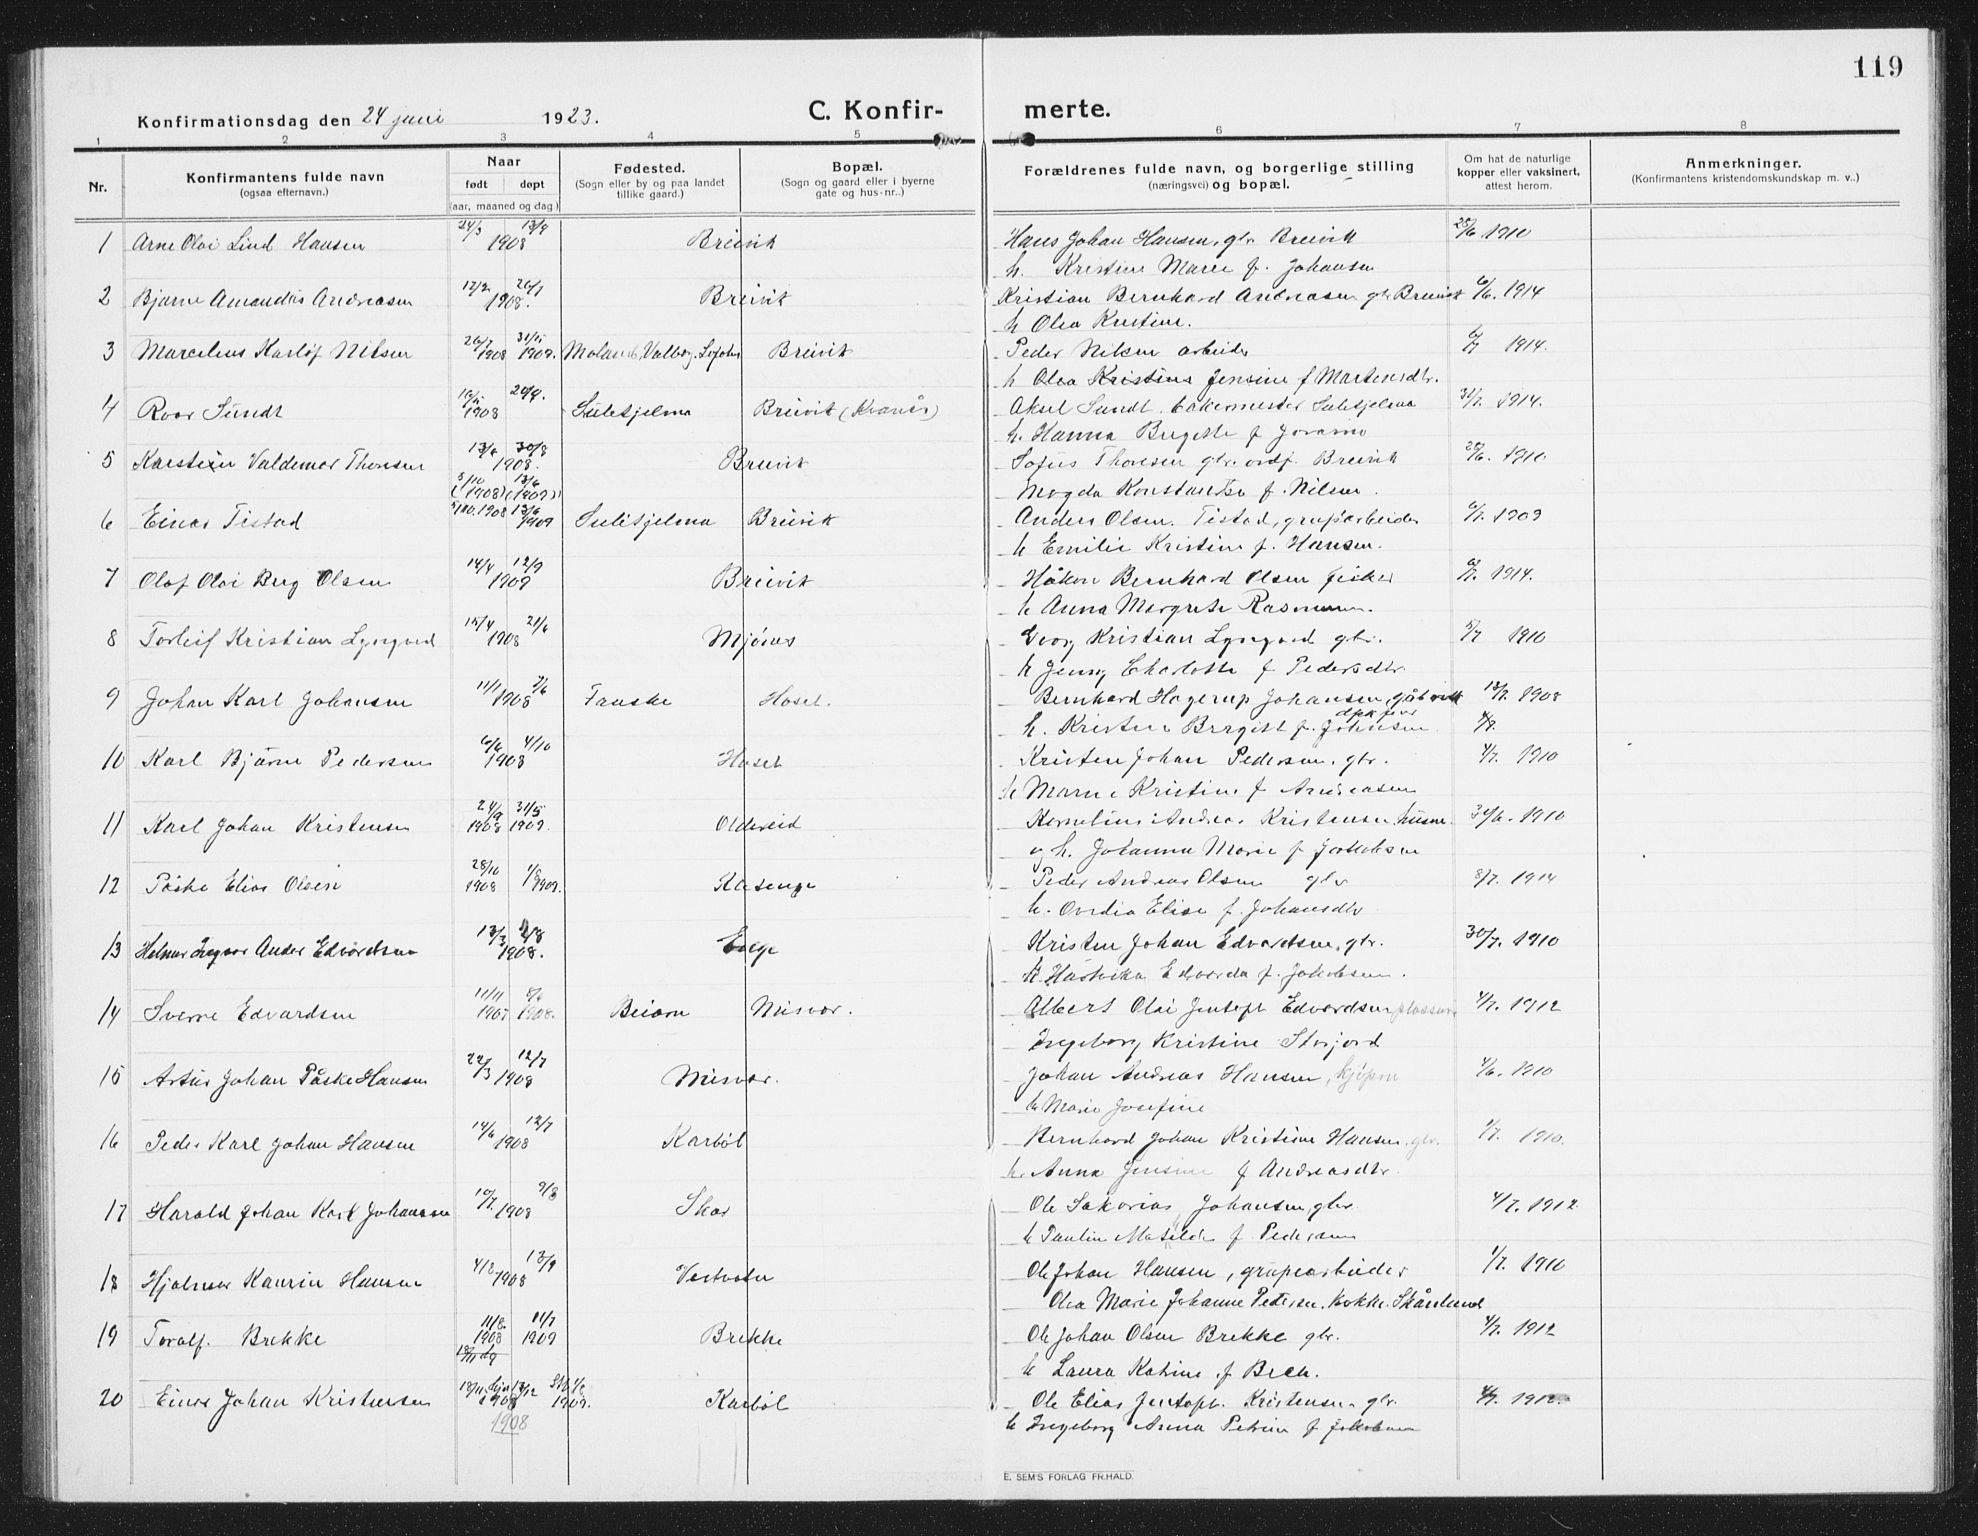 119
Konfirmationsdag den 24 juni 1923. C. Konfir- merte.
1 2 3 4 5 6 7 8
Nr. Konfirmantens fulde navn (ogsaa efternavn.) Naar født døpt (aar, maaned og dag.) Fødested. (Sogn eller by og paa landet tillike gaard.) Bopæl. (Sogn og gaard eller i byerne gate og hus-nr..) Forældrenes fulde navn, og borgerlige stilling (næringsvei) og bopæl. Om hat de naturlige kopper eller vaksinert, attest herom. Anmerkninger. (Konfirmantens kristendomskundskap m. v..)
1 Arne Olai Lind Hansen 24/3 13/9 1908 Breivik Hans Johan Hansen, gbr. Breivik 25/6 1910
h. Kristine Marie f. Johansen
2 Bjarne Amandus Andreasen 1908. Breivik Kristian Bernhard Andreasen gbr Breivik 6/6. 1914
h Olea Kristine.
3 Marcelius Karlof Nilsen 26/7 1908 31/5 1909. Breivik Peder Nilsen arbeider 1914.
h Olea Kristine Jensine f Martensdtr.
4 Roar Sundt 1908 Sulitjelma Breivik Aksel Sundt. bakermester Sulitjelma 31/7. 1914.
h. Hanna Birgitte f
5 Karstein Valdemar Thoresen 13/6 30/8 1908. Breivik Sofus Thoresen gbr. ordf. Breivik 1910
5/10 (1908) 13/6 (1909) Magda Konstanse f. Nilsen.
6 Einar Tistad 5/10. 1908 13/6 1909 Sulitjelma Breivik Anders Olsen Tistad, grubearbeider 1909
h Emilie Kristine f. Hansen.
7 Olaf Olai Berg Olsen 14/4 12/9 1909 Breivik Håkon Bernhard Olsen fisker 1914.
h Anna Margrete Rasmussen.
8 Torleif Kristian Lyngved 15/4 21/6 1908 Mjønes Georg Kristian Lyngved gbr. 1910
h Jenny Charlotte f Pedersdtr
9 Johan Karl Johansen 11/1 1908 Fauske Hoset. Bernhard Hagerup Johansen, 1908
h. Kristine Bergitte f. Johnsen
10 Karl Bjarne Pedersen 6/6 4/10 1908 Hoset Kristen Johan Pedersen. gbr. 4/7. 1910
h Marie Kristine f Andreasen
11 Karl Johan Kristensen 24/9 1908 31/5 1909. Oldereid Kornelius Andreas Kristensen husm. 30/6. 1910
og h. Johanna Marie f Jakobsen
12 Påske Elias Olsen 28/10 1908 1909. Kosenge Peder Andreas Olsen gbr 8/7. 1914
h. Ovedia Elise f. Johansdtr
13 Helmer Ingvar Ander Edvardsen 13/3 2/8 1908. Enge Kristen Johan Edvardsen, gbr. 30/7. 1910
h Hartvika Edvarda f. Jakobsen.
14 Sverre Edvardsen 11/11 1907 1908. Beiarn Misvær. Albert Olai Jentoft Edvardsen plassm. 4/7. 1912
Ingeborg Kristine Storjord
15 Artur Johan Påske Hansen 22/3 12/7 1908 Misvær. Johan Andreas Hansen, kjøpm 4/6. 1910
h Marie Josefine
16 Peder Karl Johan Hansen 14/6 12/7 1908 Karbøl Bernhard Johan Kristian Hansen, gbr. 1/7. 1910.
h. Anna Jensine f Andreasdtr.
17 Harald Johan Karl Johansen 10/7. 9/8 1908 Skar Ole Sakarias Johansen, gbr. 4/7. 1912
h Pauline Matilde f. Pedersen
18 Hjalmar Kaurin Hansen 4/8 13/9 1908 Vestvatn Ole Johan Hansen, grubearbeider 1/7. 1910
Olea Marie Johanne Pedersen. kokke. Skånland
19 Toralf. Brekke 11/8. 1908 11/7 1909 Brekke Ole Johan Olsen Brekke gbr. 4/7. 1912
h Laura Katrine f Bech.
20 Einar Johan Kristensen 18/11 1908 1909. Karbøl Ole Elias Jentoft. Kristensen. gbr. 4/7. 1912
1908 h Ingeborg Anna Petrine f Jakobsen
E. SEM'S FORLAG FR.HALD.